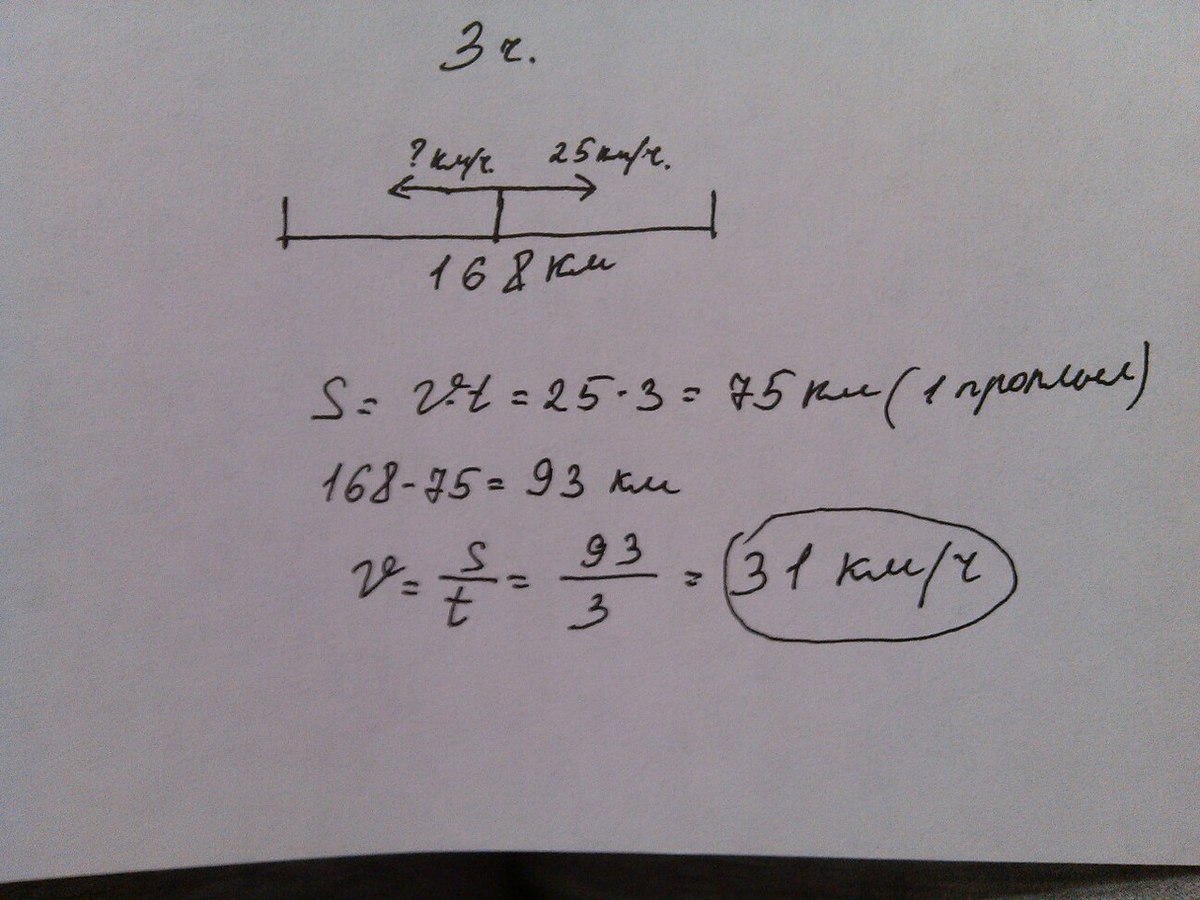 3 ч.
? км/ч. 25 км/ч.
168 км
S = v·t = 25 · 3 = 75 км (1 проплыл)
168 - 75 = 93 км
v = S/t = 93/3 = 31 км/ч